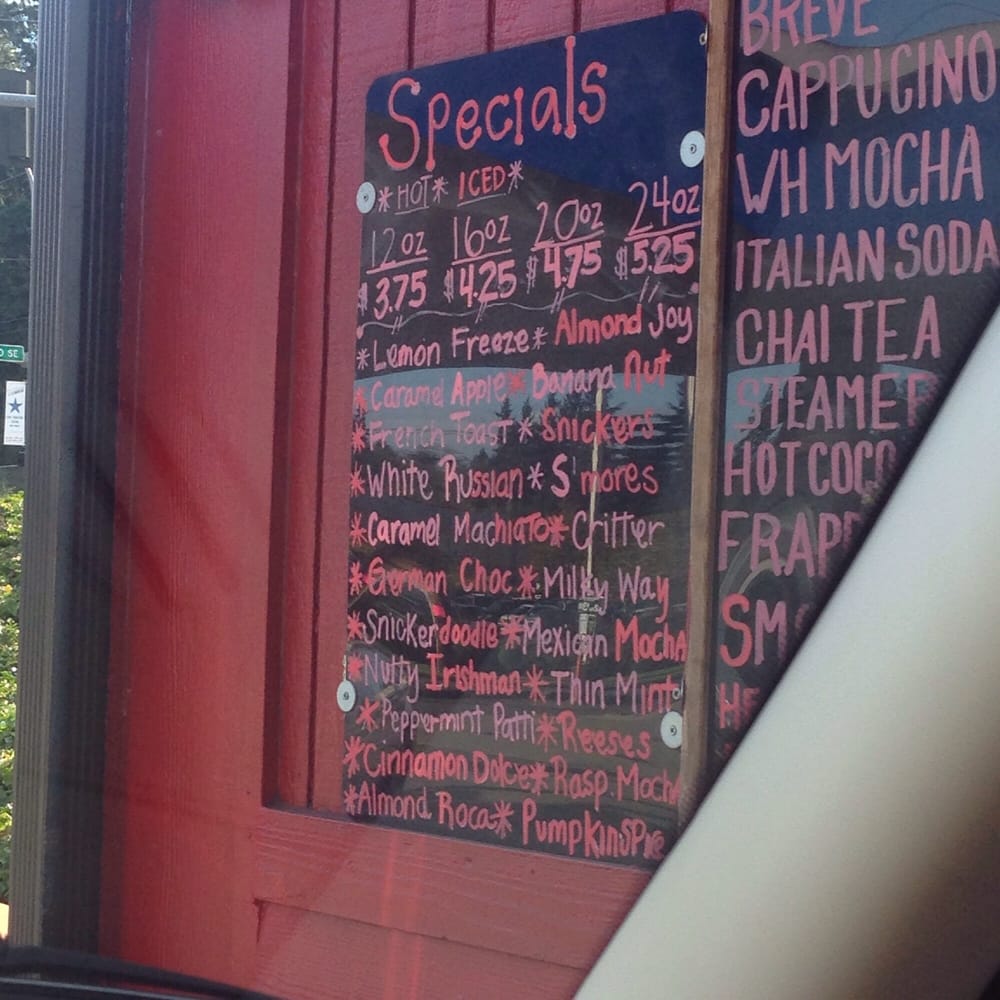 Specials
*HOT* ICED*
12oz 16oz 20oz 24oz
$3.75 $4.25 $4.75 $5.25
*Lemon Freeze* Almond Joy
*Caramel Apple* Banana Nut
*French Toast* Snickers
*White Russian* S'mores
*Caramel Machiato* Critter
*German Choc* Milky Way
*Snickerdoodle* Mexican Mocha
*Nutty Irishman* Thin Mint
*Peppermint Patti* Reeses
*Cinnamon Dolce* Rasp. Mocha
*Almond Roca* Pumpkin Spie
BREVE
CAPPUCINO
WH MOCHA
ITALIAN SODA
CHAI TEA
STEAMER
HOT COCO
FRAPP
SM
HE
SE